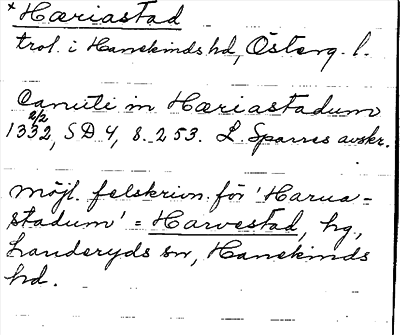 × Hæriastad
trol. i Hanekinds hd, Österg. l.
Canuti in Hæriastadum
2/2
1332, SD 4, s. 253. L. Sparres avskr.
möjl. felskrivn. för 'Harua-
stadum' = Harvestad, hg.,
Landeryds sn, Hanekinds
hd.